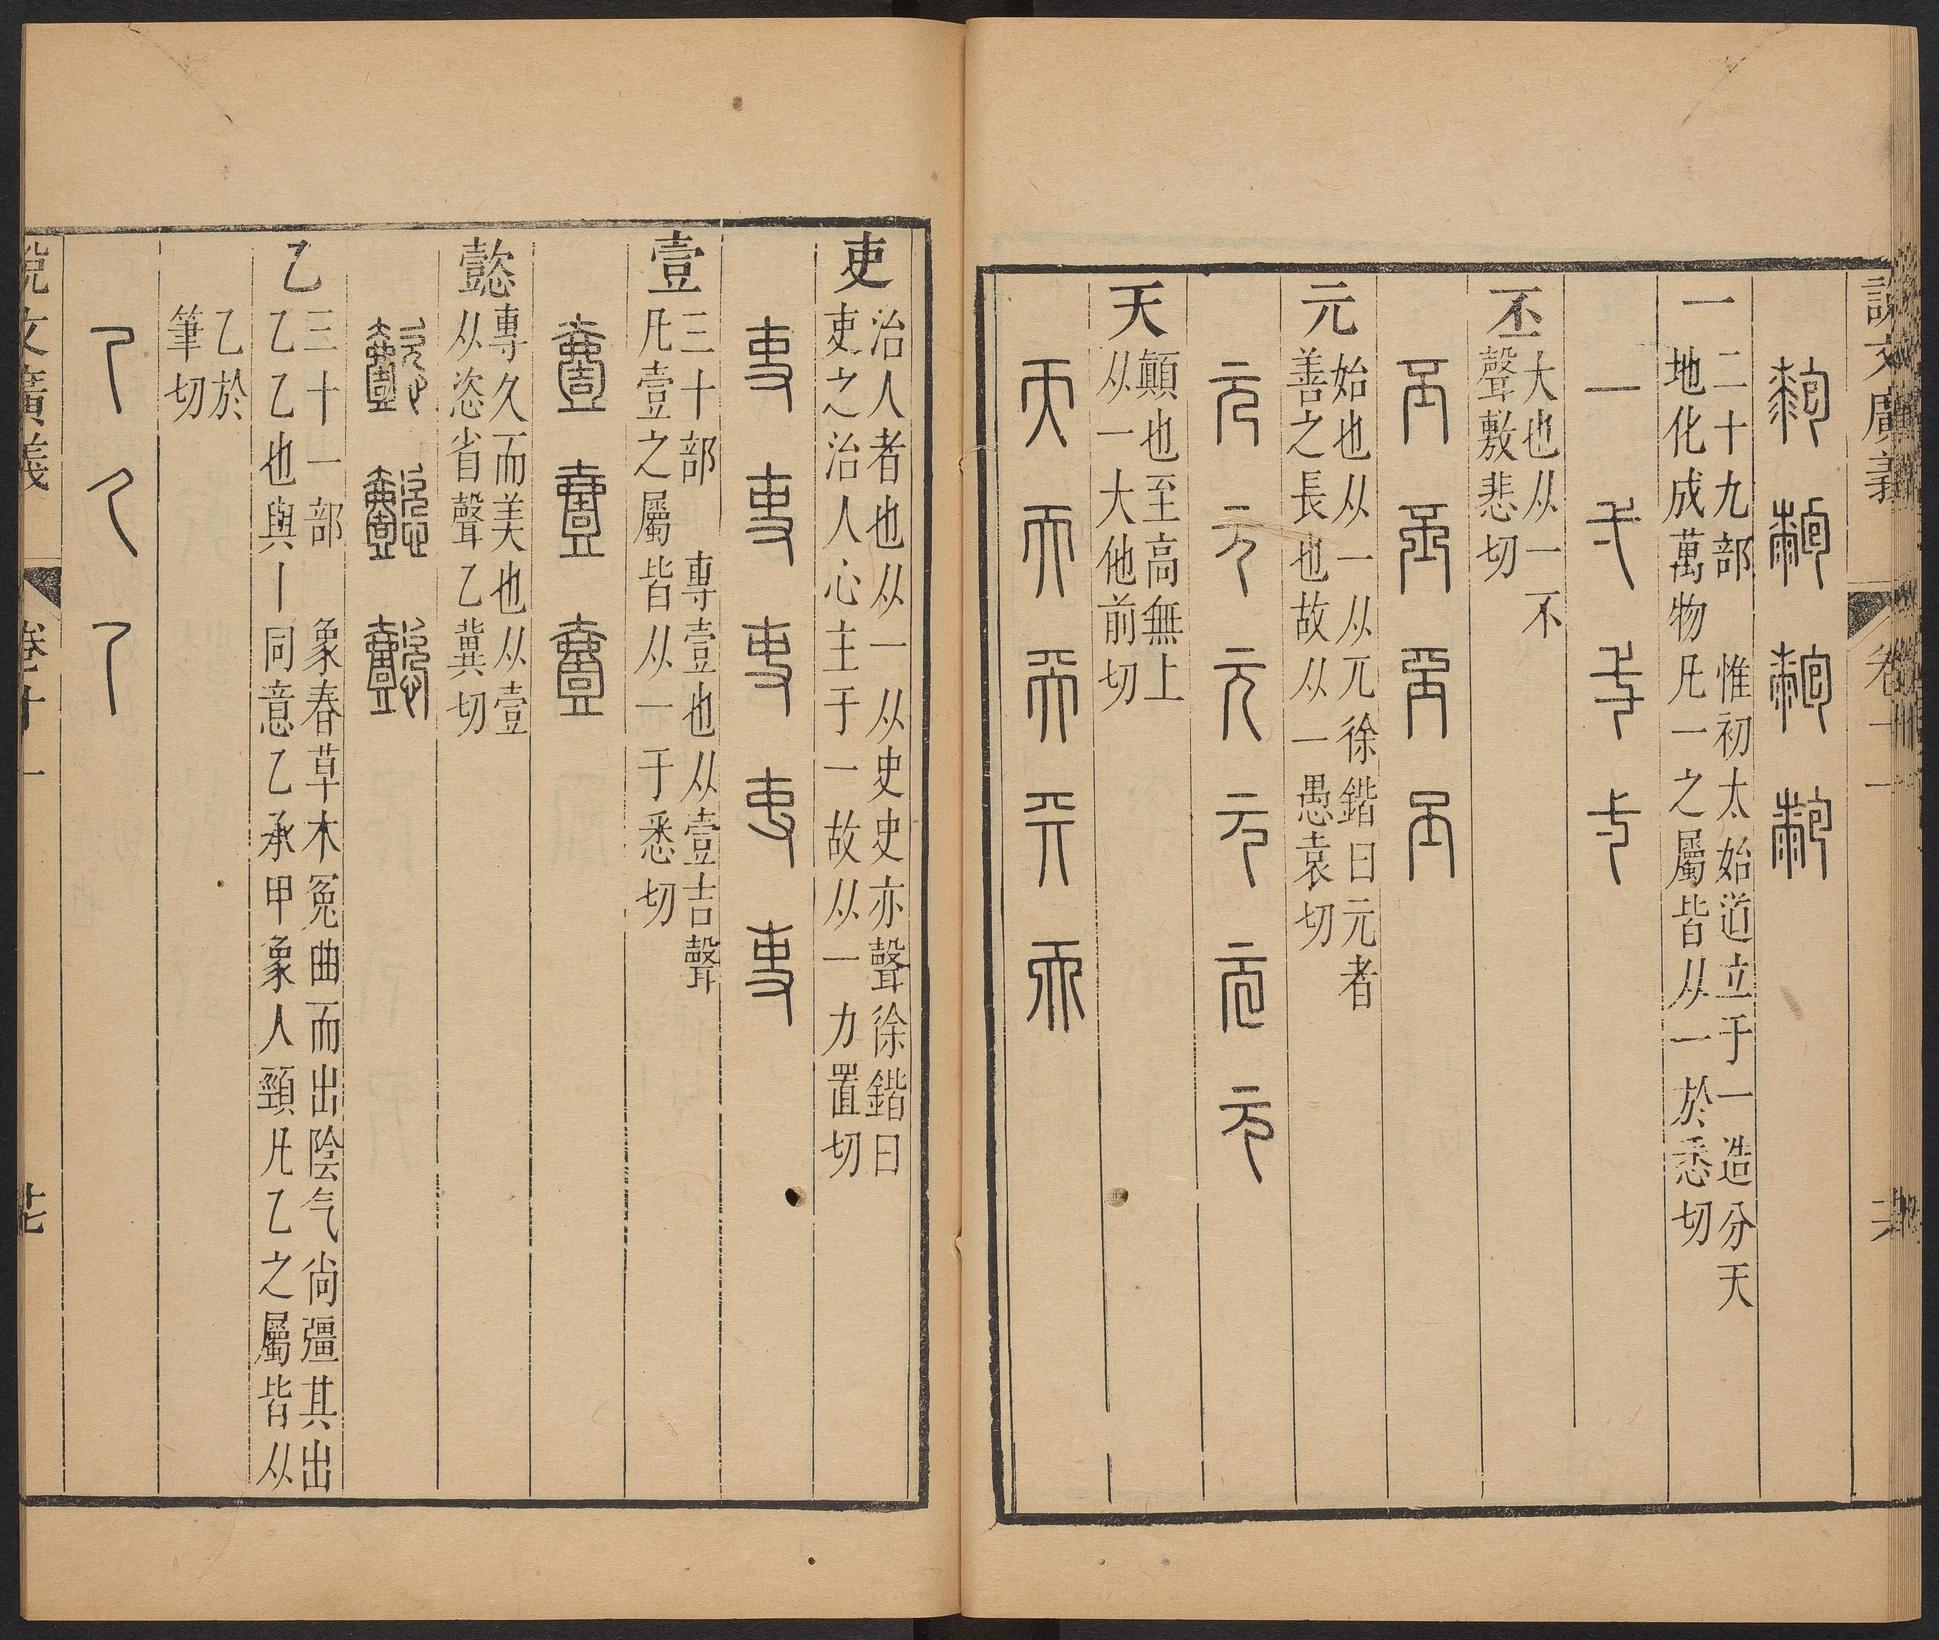 說文廣義
卷十一
一
二十九部 惟初太始道立于一造分天
地化成萬物凡一之屬皆从一於悉切
丕
大也从一不
聲敷悲切
元
始也从一从兀徐鍇曰元者
善之長也故从一愚袁切
天
顚也至高無上
从一大他前切
吏
治人者也从一从史史亦聲徐鍇曰
吏之治人心主于一故从一力置切
壹
三十部 專壹也从壺吉聲
凡壹之屬皆从一于悉切
懿
專久而美也从壹
从恣省聲乙冀切
乙
三十一部 象春草木冤曲而出陰气尚彊其出
乙乙也與丨同意乙承甲象人頸凡乙之屬皆从
乙於
筆切
說文廣義
卷十一